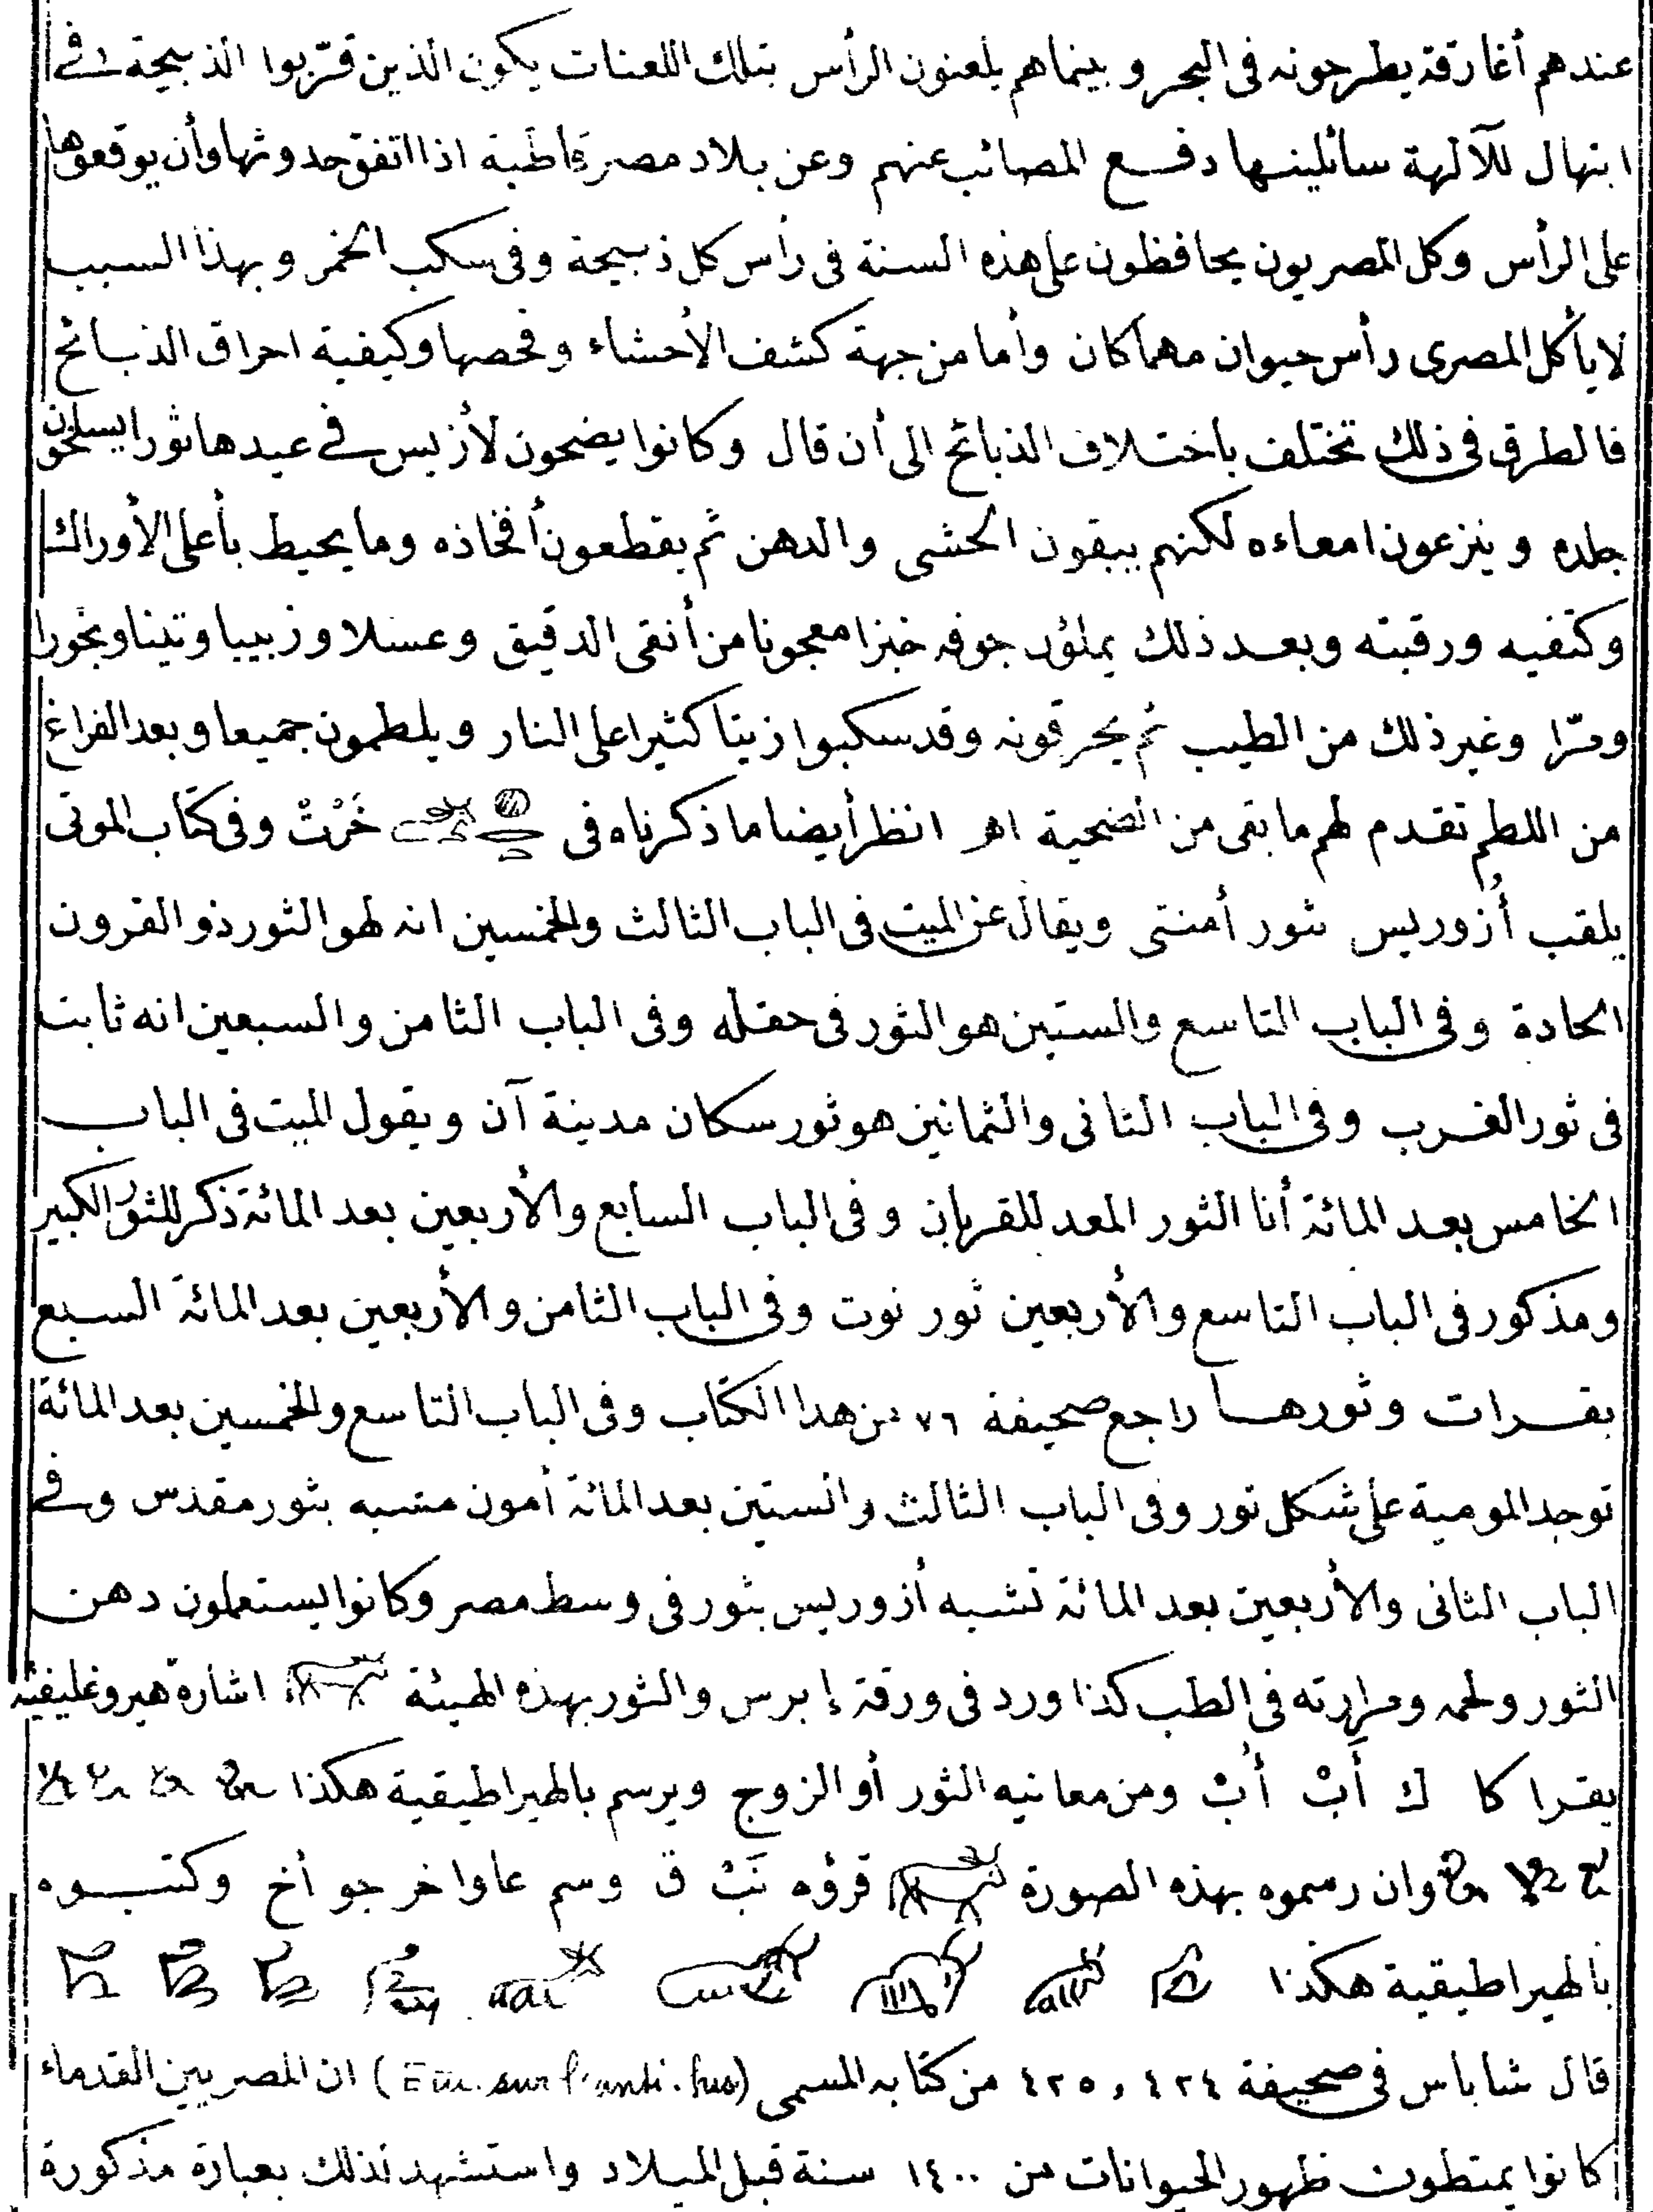 عندهم أغارقة يطرحونه فى البحر وبينماهم يلعنون الرأس بتلك اللعنات يكون الذين قرّبوا الذبيحة فى
ابتهال للآلهة سائلينها دفع المصائب عنهم وعن بلاد مصر قاطبة اذا اتفق حدوثها وأن يوقعوها
على الرأس وكل المصريون يحافظون على هذه السنة فى رأس كل ذبيحة وفى سكب الخمر وبهذا السبب
لا يأكل المصرى رأس حيوان مهما كان وأما من جهة كشف الأحشاء وفحصها وكيفية احراق الذبائح
فالطرق فى ذلك تختلف باختلاف الذبائح الى أن قال وكانوا يضحون لأزيس فى عيدها ثورا يسلخون
جلده وينزعون امعاءه لكنهم يبقون الحشى والدهن ثم يقطعون أفخاذه وما يحيط بأعلى الأوراك
وكتفيه ورقبته وبعد ذلك يملؤن جوفه خبزا معجونا من أنقى الدقيق وعسلا وزبيبا وتينا وبخورا
ومرّا وغير ذلك من الطيب ثم يحرقونه وقد سكبوا زيتا كثيرا على النار ويلطمون جميعا وبعد الفراغ
من اللطم تقدم لهم ما بقى من الضحية اهـ انظر أيضا ما ذكرناه فى خَرْتْ وفى كتاب الموتى
يلقب أُزوريس ثور أمنتى ويقال عن الميت فى الباب الثالث والخمسين انه لهو الثور ذو القرون
الحادة وفى الباب التاسع والستين هو الثور فى حقله وفى الباب الثامن والسبعين انه ثابت
فى ثور الغرب وفى الباب الثانى والثمانين هو ثور سكان مدينة آن ويقول الميت فى الباب
الخامس بعد المائة أنا الثور المعد للقربان وفى الباب السابع والأربعين بعد المائة ذكر للثور الكبير
ومذكور فى الباب التاسع والأربعين ثور نوت وفى الباب الثامن والأربعين بعد المائة السبع
بقرات وثورها راجع صحيفة ٧٦ من هذا الكتاب وفى الباب التاسع والخمسين بعد المائة
توجد المومية على شكل ثور وفى الباب الثالث والستين بعد المائة أمون مشبه بثور مقدس وفى
الباب الثانى والأربعين بعد المائة تشبه أزوريس بثور فى وسط مصر وكانوا يستعملون دهن
الثور ولحمه ومرارته فى الطب كذا ورد فى ورقة إبرس والثور بهذه الهيئة اشارة هيروغليفية
يقرا كا ك أَبْ أُبْ ومن معانيه الثور أو الزوج ويرسم بالهيراطيقية هكذا
وان رسموه بهذه الصورة قرؤه نَبْ ق وسم عاوا خر جو أخ وكتبوه
بالهيراطيقية هكذا
قال شاباس فى صحيفة ٤٢٤ و ٤٢٥ من كتابه المسمى ان المصريين القدماء
كانوا يمتطون ظهور الحيوانات من ١٤٠٠ سنة قبل الميلاد واستشهد لذلك بعبارة مذكورة